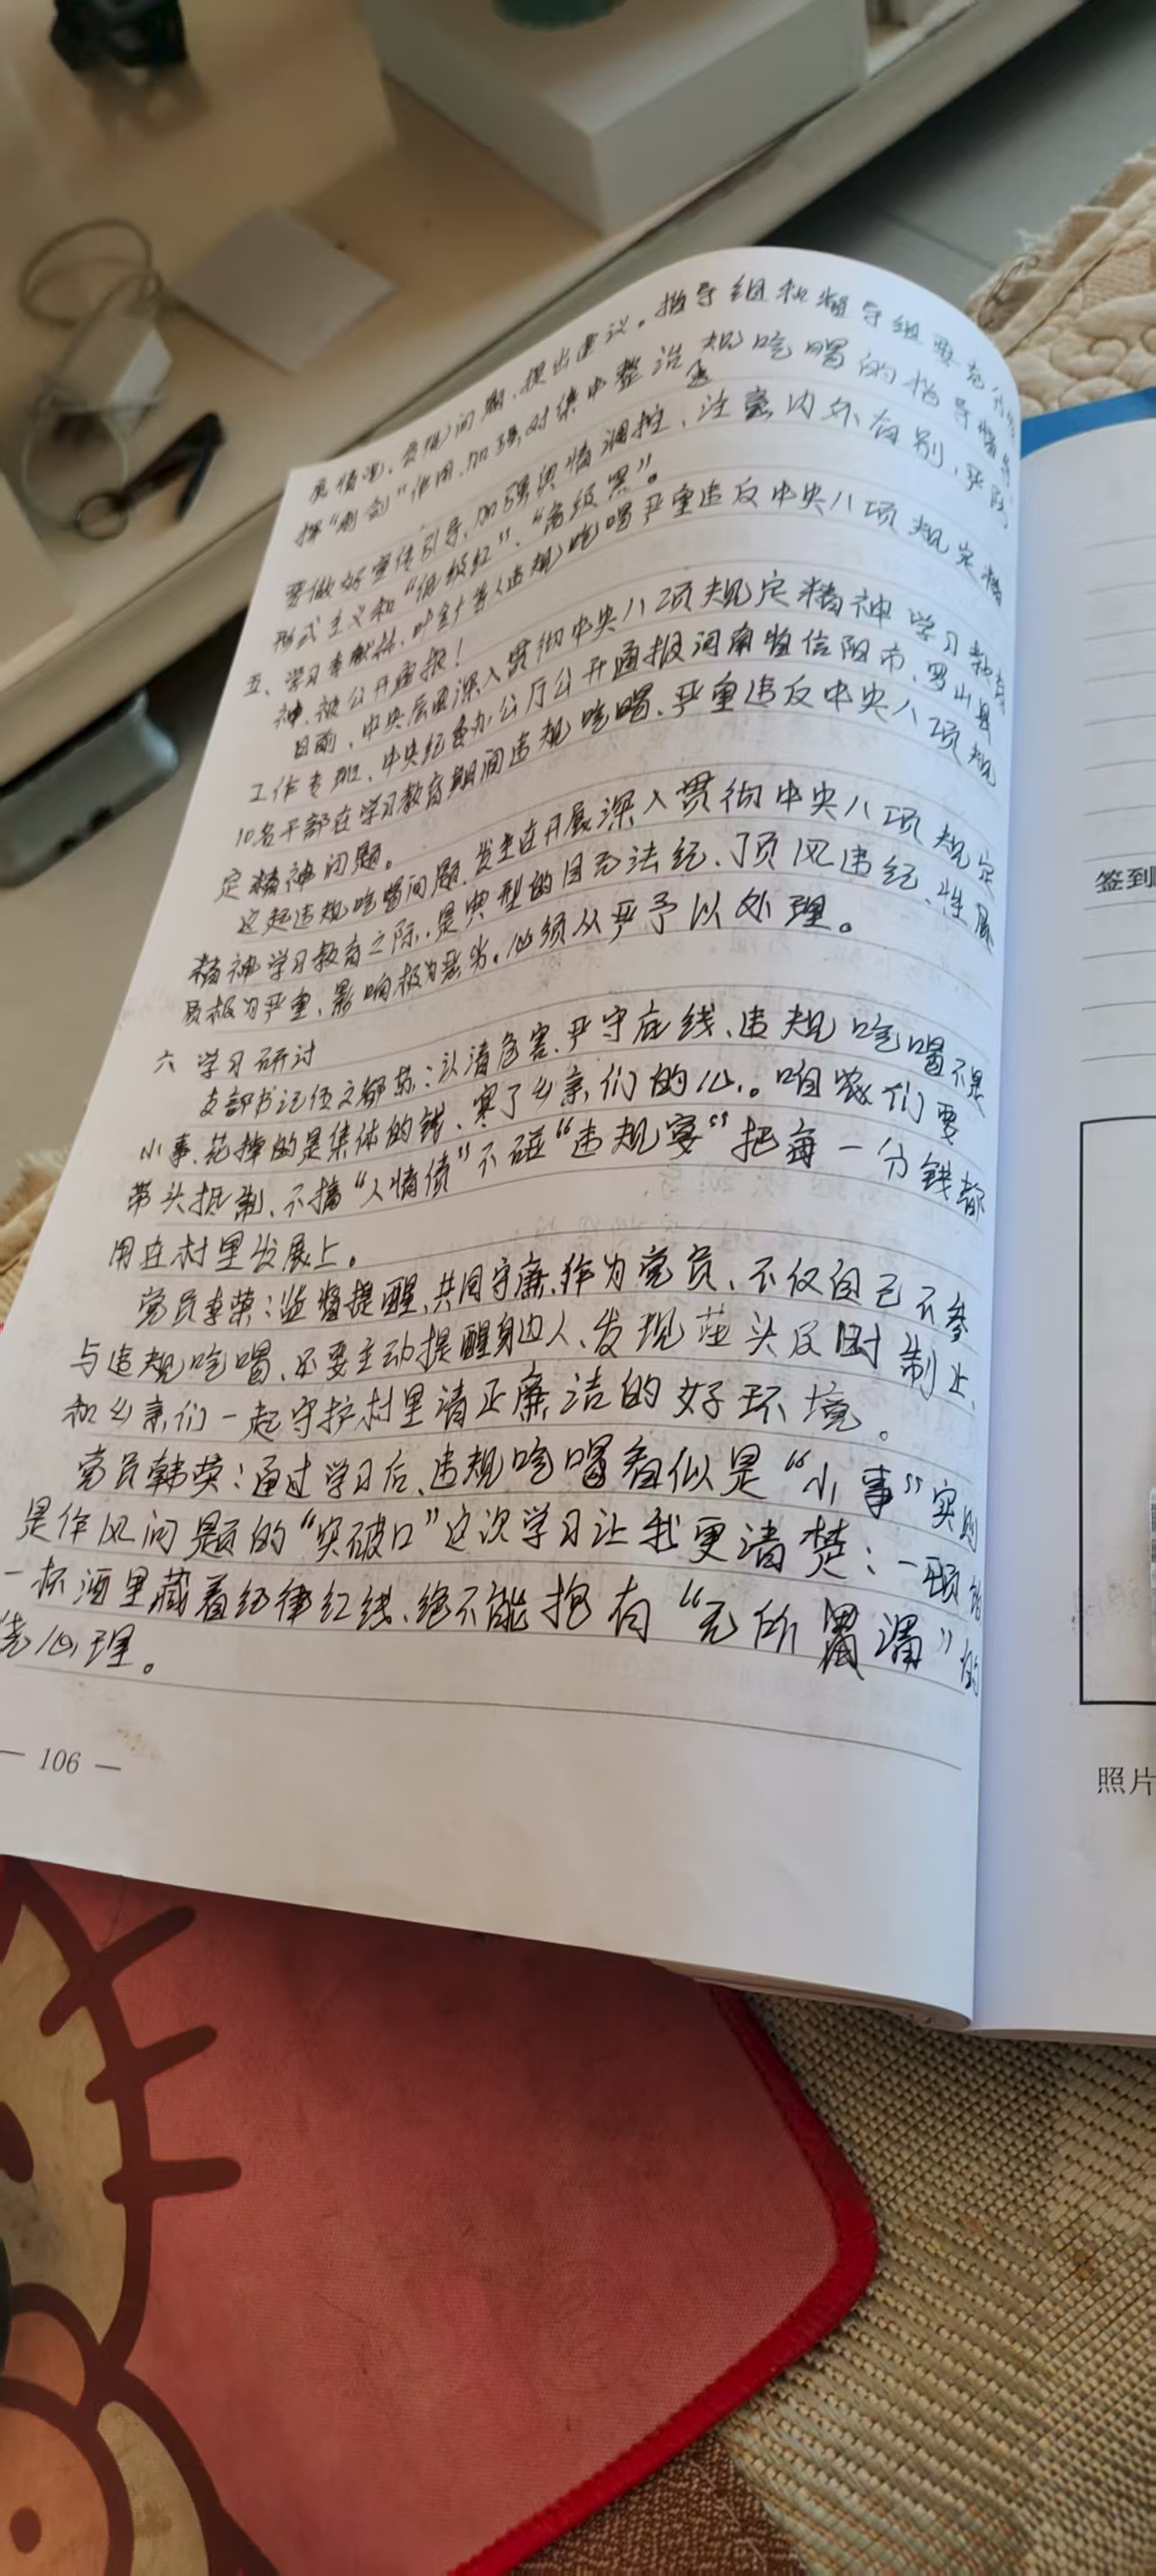 展情况，发现问题，提出建议。指导组和督导组要充分发
挥“利剑”作用，加强对集中整治违规吃喝的指导督导，
要做好宣传引导，加强舆情调控，注意内外有别，严防
形式主义和“低级红”、“高级黑”。
五、学习李献林、叶金广等人违规吃喝严重违反中央八项规定精
神，被公开通报！
日前，中央层面深入贯彻中央八项规定精神学习教育
工作专班、中央纪委办公厅公开通报河南省信阳市罗山县
10名干部在学习教育期间违规吃喝、严重违反中央八项规
定精神问题。
这起违规吃喝问题，发生在开展深入贯彻中央八项规定
精神学习教育之际，是典型的目无法纪、顶风违纪，性质
质极为严重、影响极为恶劣。必须从严予以处理。
六 学习研讨
支部书记：认清危害、严守底线、违规吃喝不是
小事、花掉的是集体的钱、寒了乡亲们的心。咱们要
带头抵制、不搞“人情债”不碰“违规宴”把每一分钱都
用在村里发展上。
党员李荣：监督提醒、共同守廉，作为党员、不仅自己不参
与违规吃喝、还要主动提醒身边人、发现苗头及时制止、
和乡亲们一起守护村里清正廉洁的好环境。
党员韩英：通过学习后、违规吃喝看似是“小事”实则
是作风问题的“突破口”这次学习让我更清楚：一顿饭
一杯酒里藏着纪律红线、绝不能抱有“无所谓”的
心理。
— 106 —
签到
照片